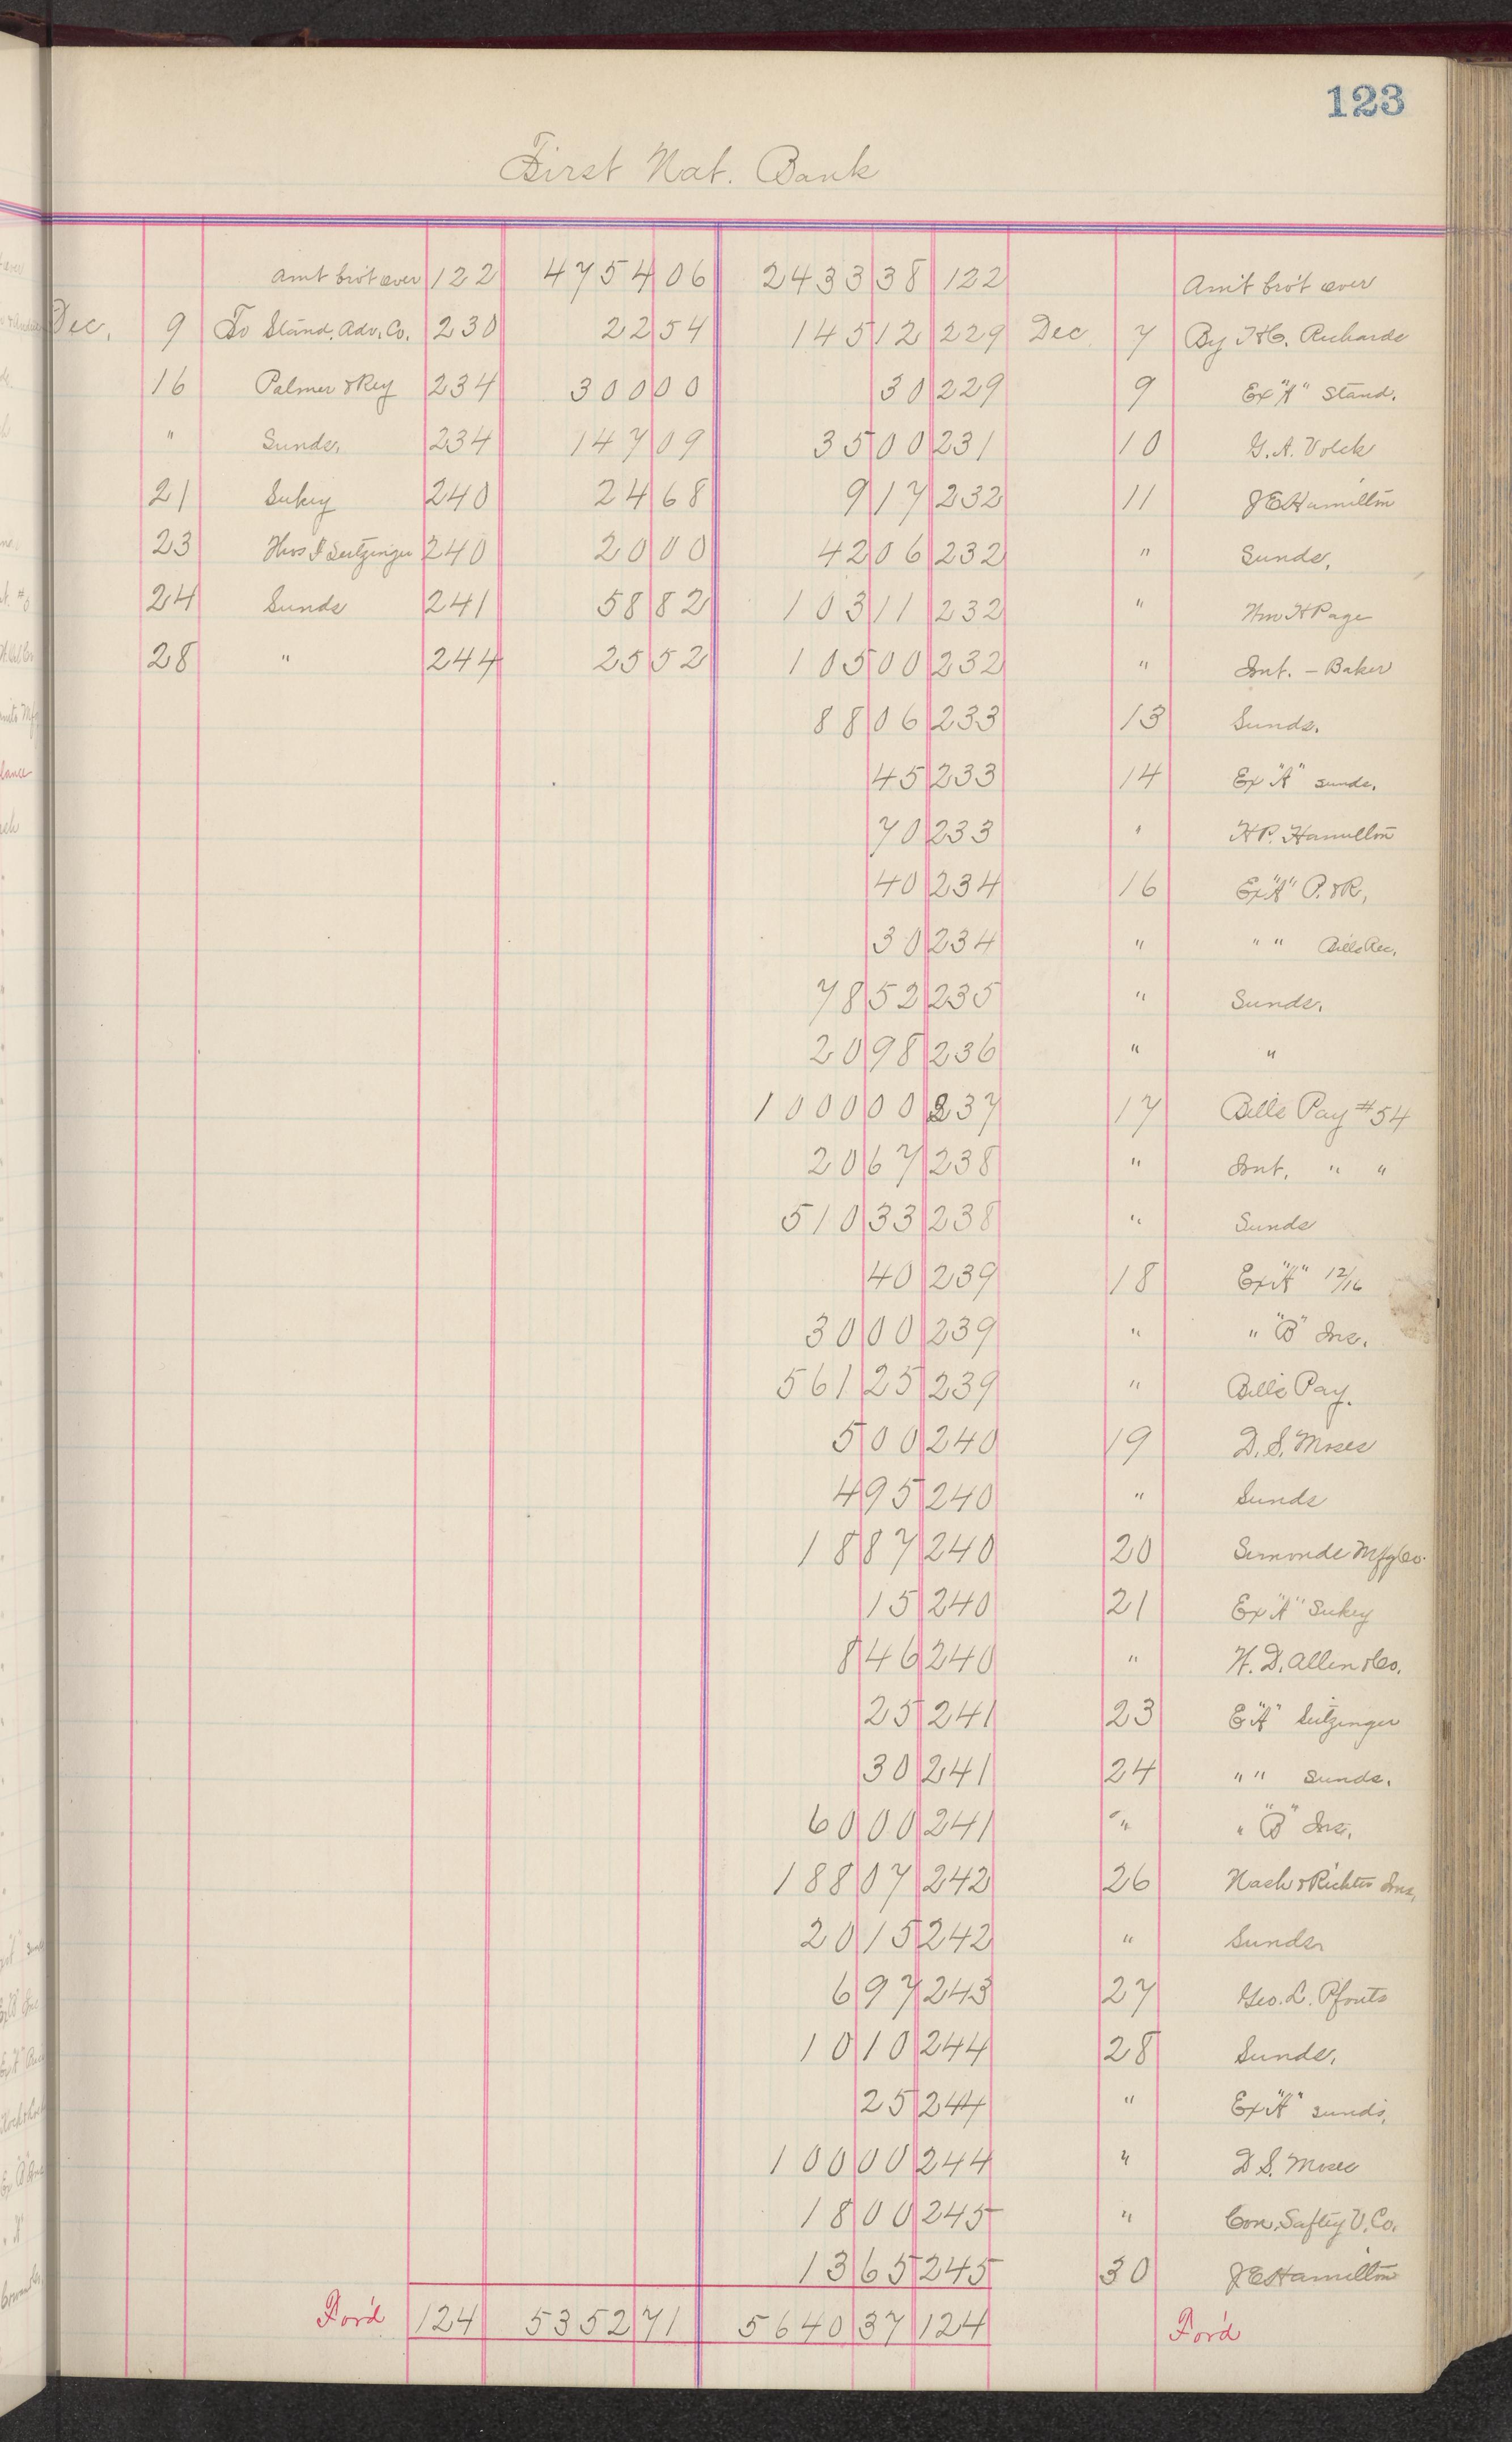 123
First Nat. Bank
Amt bro't over 122 4754 06 2433 38 122 Am't bro't over
Dec. 9 To Stand. Adv. Co. 230 22 54 145 12 229 Dec 7 By H.C. Richards
16 Palmer & Rey 234 300 00 30 229 9 Ex "A" Stand.
" Sunds. 234 147 09 35 00 231 10 G. A. Volck
21 Sukey 240 24 68 9 17 232 11 J E Hamilton
23 Seitzinger 240 20 00 42 06 232 " Sunds.
24 Sunds 241 58 82 103 11 232 " Wm H Page
28 " 244 25 52 105 00 232 " Int. - Baker
88 06 233 13 Sunds.
45 233 14 Ex "A" sunds.
70 233 " H P. Hamilton
40 234 16 Ex "A" P. & R.
30 234 " " " Bills Rec.
78 52 235 " Sunds.
20 98 236 " "
1000 00 237 17 Bills Pay #54
20 67 238 " Int. " "
510 33 238 " Sunds
40 239 18 Ex "A" 12/16
30 00 239 " " "B" Ins.
561 25 239 " Bills Pay.
5 00 240 19 D. S. Moses
4 95 240 " Sunds
18 87 240 20 Simonds Mfg Co.
15 240 21 Ex "A" Sukey
8 46 240 " H. D. Allen & Co.
25 241 23 E "A" Seitzinger
30 241 24 " " sunds.
60 00 241 " " "B" Ins.
188 07 242 26 Nach & Richter Ins.
20 15 242 " Sunds
6 97 243 27 Geo. L. Pfouts
10 10 244 28 Sunds.
25 244 " Ex "A" sunds.
100 00 244 " D S. Moses
18 00 245 " Con. Saftey V. Co.
13 65 245 30 J E Hamilton
For'd 124 5352 71 5640 37 124 For'd